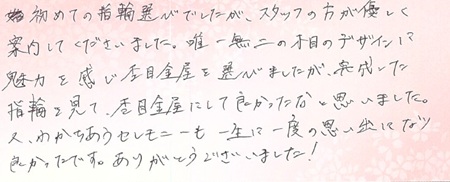 初めての指輪選びでしたが、スタッフの方が優しく
案内してくださいました。唯一無二の木目のデザインに
魅力を感じ杢目金屋を選びましたが、完成した
指輪を見て、杢目金屋にして良かったなと思いました。
又、わかちあうセレモニーも一生に一度の思い出になり
良かったです。ありがとうございました!